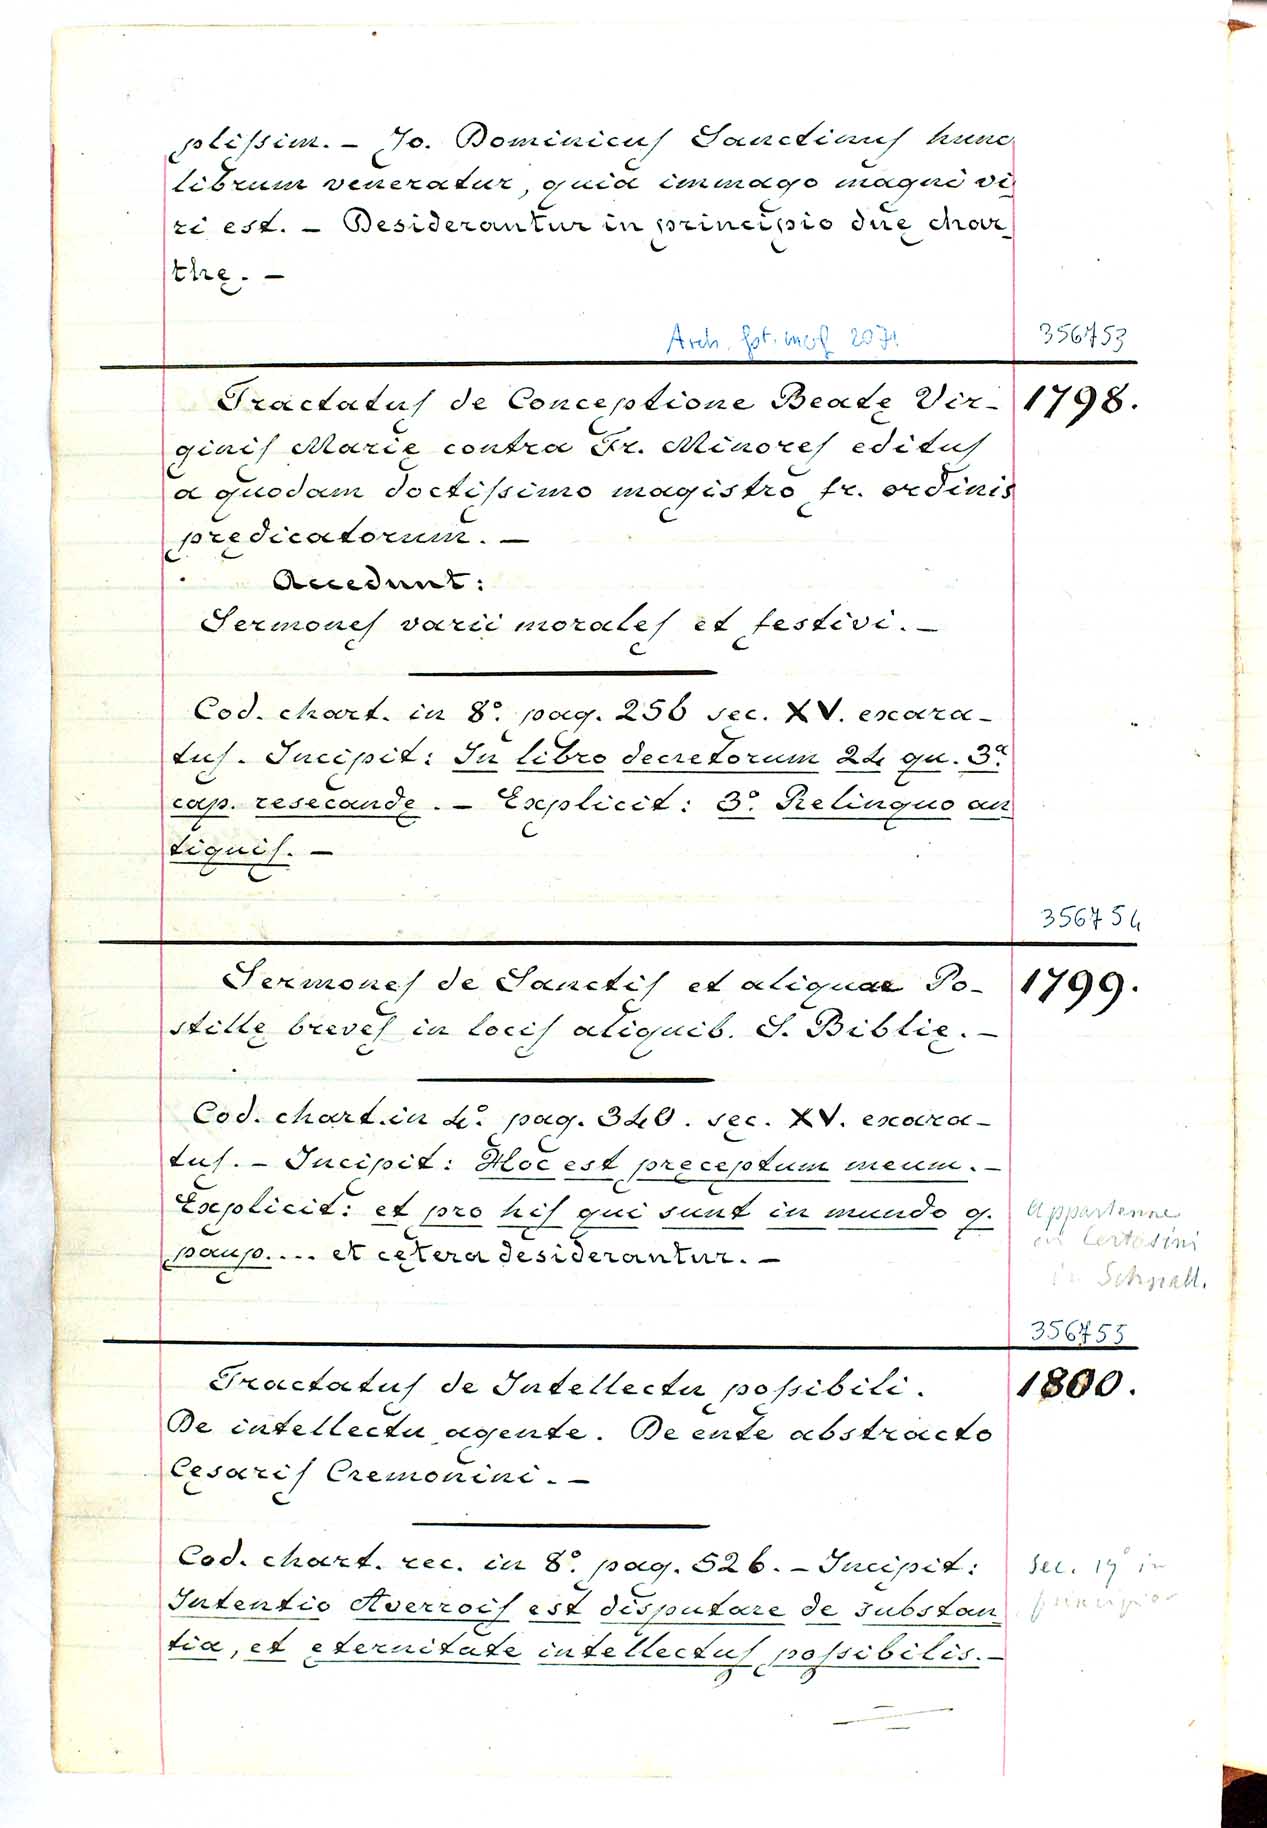 plissim. – Jo. Dominicus Sanctinus hunc
librum veneratur, quia immago magni vi
ri est. – Desiderantur in principio duę char_
thę. –
Arch. fot. neg 2071
356753
Tractatus de Conceptione Beatę Vir-
1798.
ginis Marię contra Fr. Minores editus
a quodam doctissimo magistro fr. ordinis
prędicatorum. –
Accedunt:
Sermones varii morales et festivi. –
Cod. chart. in 8º. pag. 256 sec. XV. exara-
tus. Incipit: In libro decretorum 24 qu. 3ª.
cap. resecandę. – Explicit: 3º. Relinquo an
tiquis. –
356754
Sermones de Sanctis et aliquae Po-
1799.
stillę breves in locis aliquib. S. Biblię. –
Cod. chart. in 4º. pag. 340. sec. XV. exara-
tus. – Incipit: Hoc est pręceptum meum. –
Explicit: et pro his qui sunt in mundo q.
paup.... et cętera desiderantur. –
Appartenne
ai Certosini
in Schnall.
356755
Tractatus de Intellectu possibili.
1800.
De intellectu agente. De ente abstracto
Cęsaris Cremonini. –
Cod. chart. rec. in 8º. pag. 526. – Incipit:
Intentio Averrois est disputare de substan_
tia, et ęternitate intellectus possibilis. –
sec. 17º in
principio